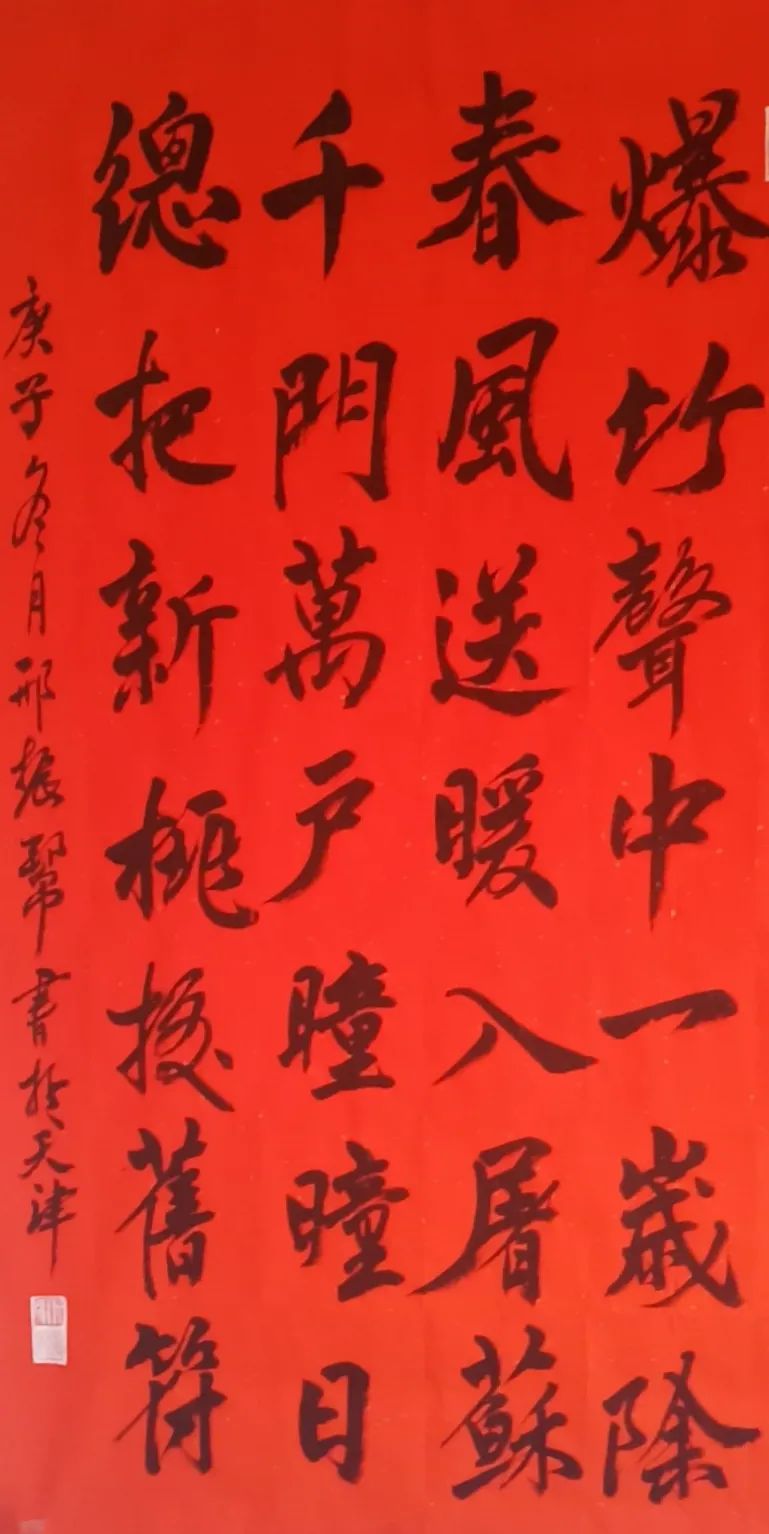 爆竹聲中一歲除
春風送暖入屠蘇
千門萬戶曈曈日
總把新桃換舊符
庚子冬月邢振幫書於天津